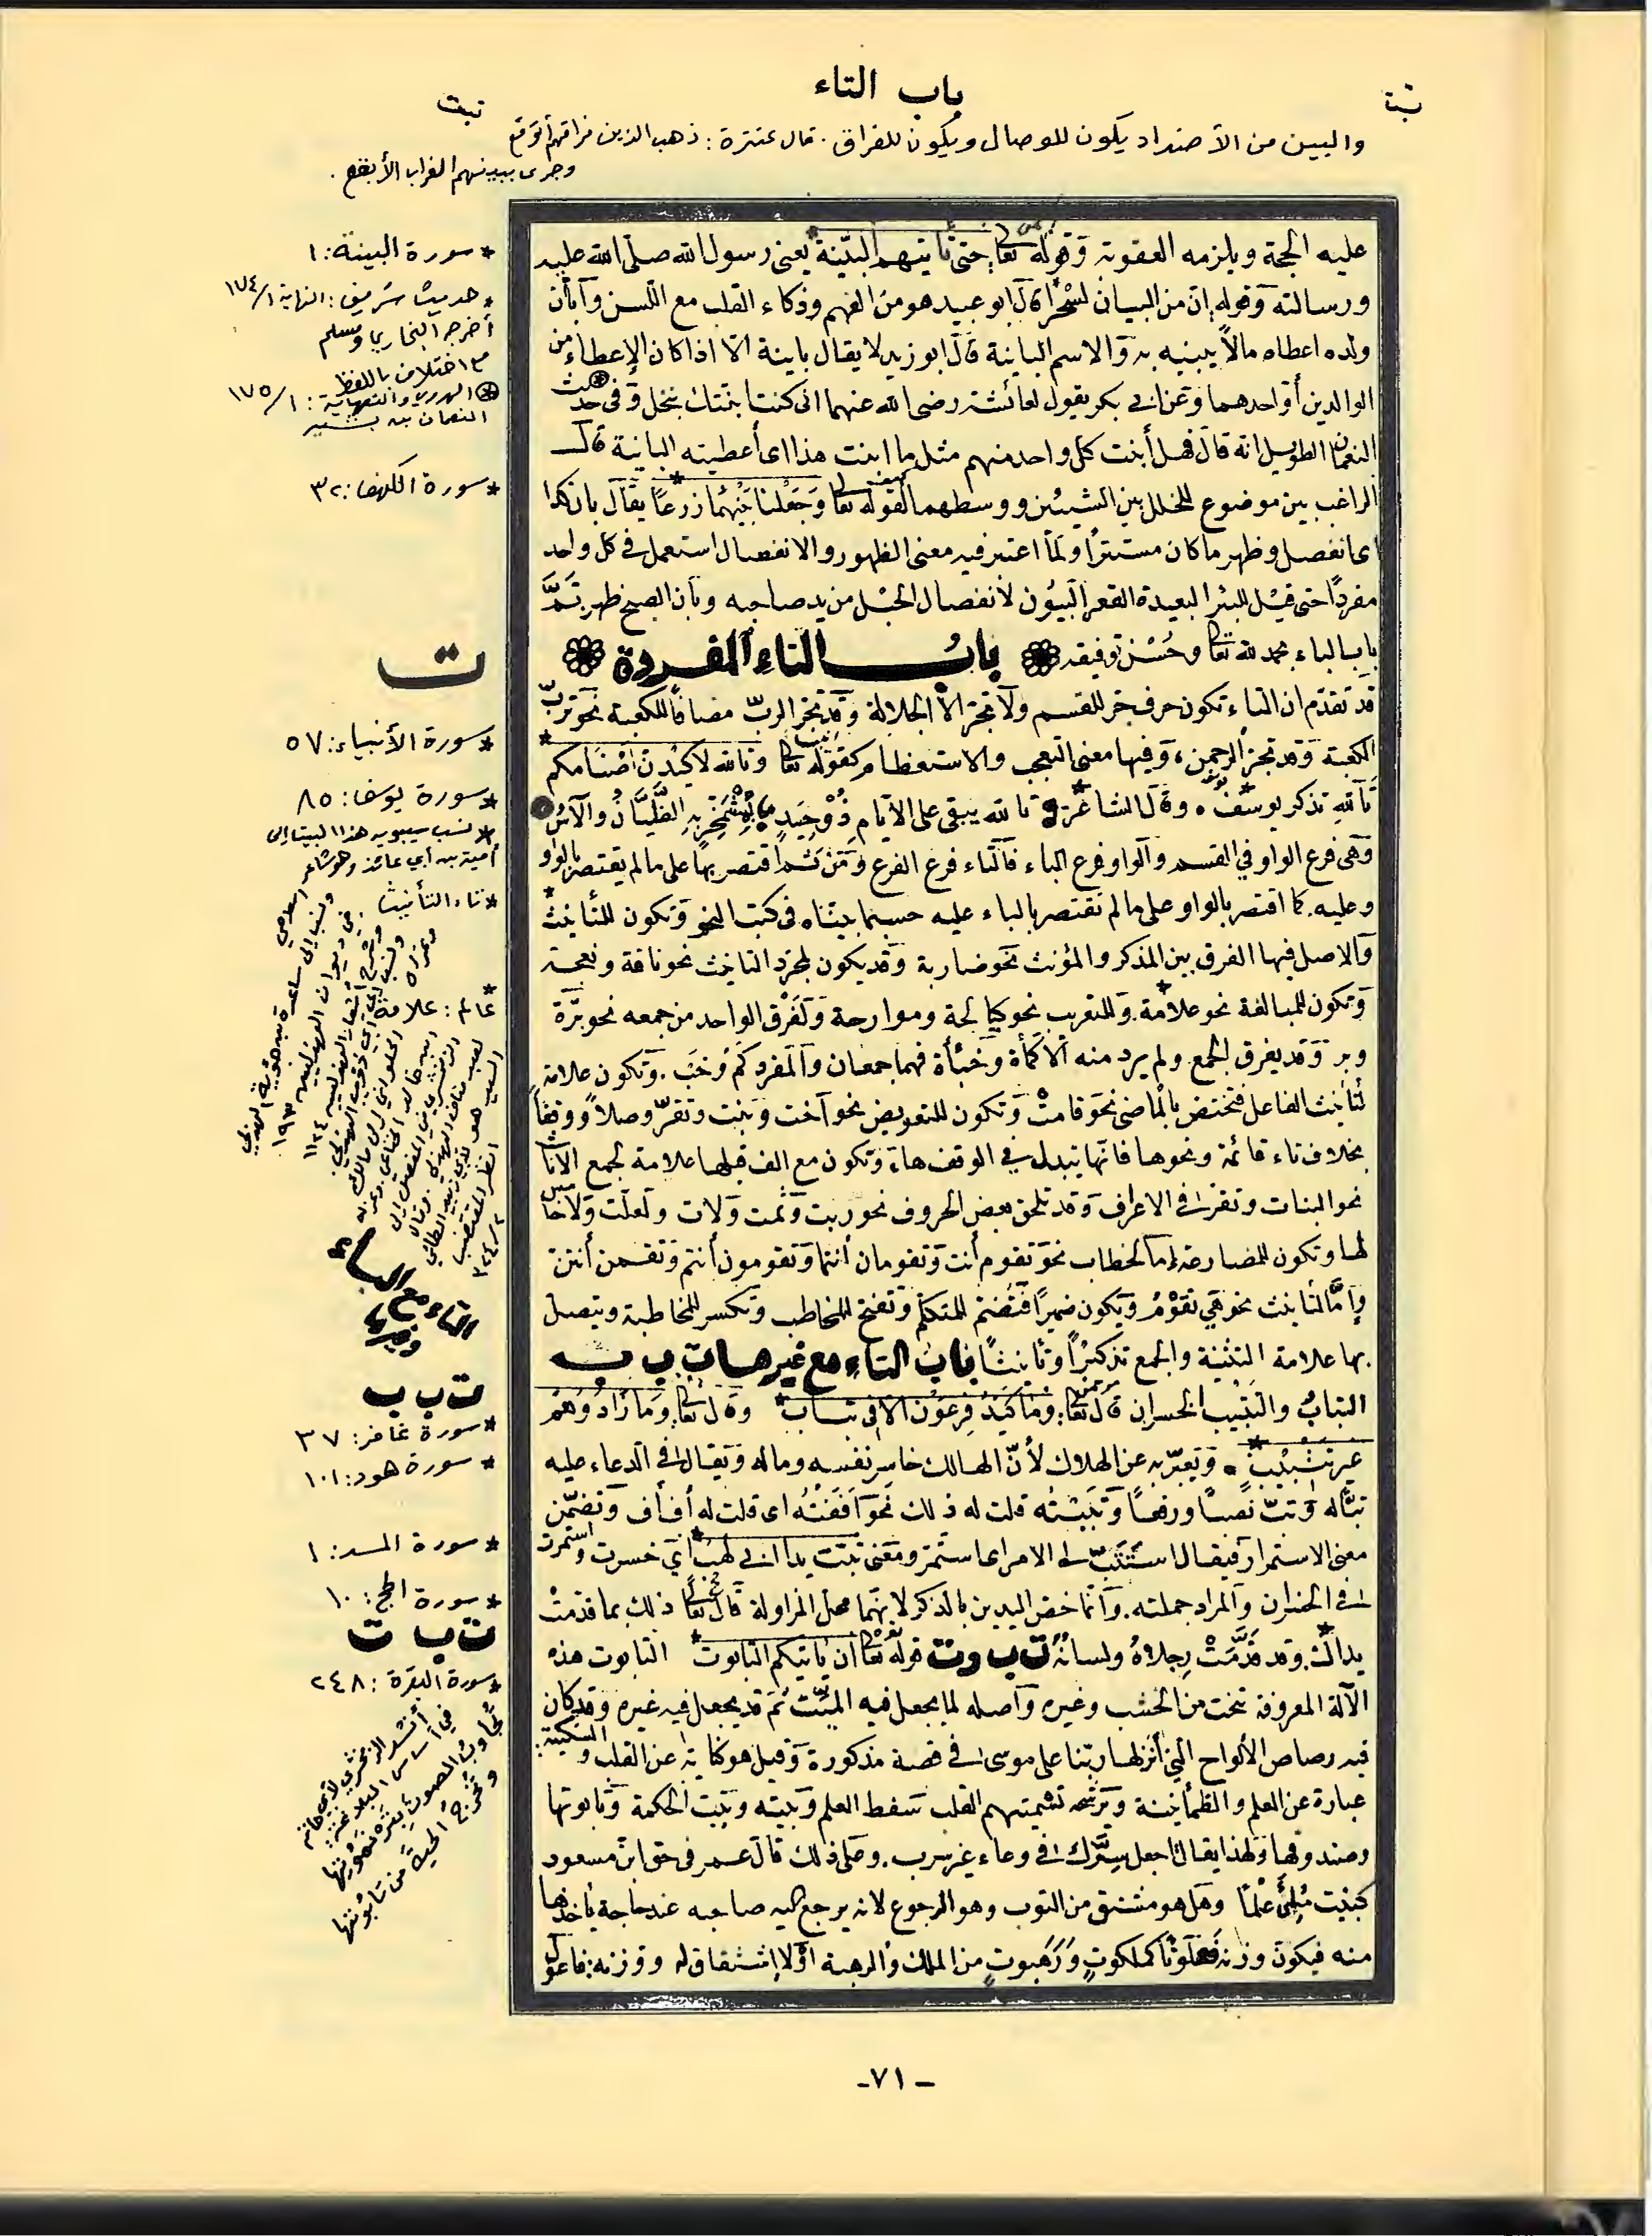 باب التاء
تبت
تبت
والبين من الأضداد يكون للوصال ويكون للفراق. قال عنترة: ذهب الذين فراقهم أتوقع
وجرى ببينهم الغراب الأبقع.
عليه الحجة ويلزمه العقوبة وقوله تعالى حتى تأتيهم البينة يعنى رسول الله صلى الله عليه
ورسالته وقوله إن من البيان لسحراً قال ابو عبيد هو من الفهم وذكاء القلب مع اللسن وأبان
ولده اعطاه مالاً يبينه به والاسم البائنة قال ابو زيد لا يقال بائنة الا اذا كان الإعطاء من
الوالدين أو احدهما وعن ابى بكر يقول لعائشة رضى الله عنهما انى كنت ابنتك بنخل وفى حديث
النعمان الطويل انه قال فهل أبنت كل واحد منهم مثل ما ابنت هذا اى أعطيته البائنة قال
الراغب بين موضوع للخلل بين الشيئين ووسطهما لقوله تعالى وجعلنا بينهما زرعاً يقال بان كذا
اى انفصل وظهر ما كان مستتراً ولما اعتبر فيه معنى الظهور والانفصال استعمل فى كل واحد
مفرداً حتى قيل للبئر البعيدة القعر البيون لانفصال الحبل من يد صاحبه وبان الصبح ظهر تم
باب الباء بحمد لله تعالى وحسن توفيقه باب التاء المفردة
قد تقدم ان التاء تكون حرف جر للقسم ولا تجر الا الجلالة وقد تجر الرب مضافاً للكعبة نحو ترب
الكعبة وقد تجر الرحمن، وفيها معنى التعجب والاستعظام كقوله تعالى وتالله لاكيدن اصنامكم
تالله تذكر يوسف. وقال الشاعر تالله يبقى على الايام ذو حيد بمشمخر به الظيان والآس
وهى فرع الواو في القسم والواو فرع الباء فالتاء فرع الفرع ومن ثم اقتصر بها على ما لم يقتصر بالواو
وعليه. كما اقتصر بالواو على ما لم تقتصر بالباء عليه حسبما بيناه فى كتب النحو وتكون للتأنيث
والاصل فيها الفرق بين المذكر والمؤنث نحو ضاربة وقد يكون لمجرد التانيث نحو ناقة ونعجة
وتكون للمبالغة نحو علامة. وللتعريب نحو كيالجة وموازجة ولفرق الواحد من جمعه نحو برة
وبر وقد يفرق الجمع. ولم يرد منه الا كمأة وخبأة فهما جمعان والمفرد كم وخب. وتكون علامة
لتانيث الفاعل فتختص بالماضى نحو قامت وتكون للتعويض نحو اخت وبنت وتقر وصلاً ووقفاً
بخلاف تاء قائمة ونحوها فانها تبدل في الوقف هاء وتكون مع الف قبلها علامة لجمع الاناث
نحو البنات وتقر فى الاعرف وقد تلحق بعض الحروف نحو ربت وثمت ولات ولعلت ولا خامس
لها وتكون للمضارعة إما لخطاب نحو تقوم أنت وتقومان أنتما وتقومون أنتم وتقمن أنتن
وإما لتانيث نحو هى تقوم ويكون ضميراً فتضم للمتكلم وتفتح للمخاطب وتكسر للمخاطبة ويتصل
بها علامة التثنية والجمع تذكيراً وتأنيثاً باب التاء مع غيرها ت ب ب
التباب والتتبيب الخسران قال تعالى: وما كيد فرعون الا فى تباب وقال تعالى: وما زادوهم
غير تتبيب. وتعبر به عن الهلاك لأن الهالك خاسر نفسه وماله ويقال فى الدعاء عليه
تبا له وتب نصباً ورفعاً وتببته قلت له ذلك نحو أففته اى قلت له أف أف وتضمن
معنى الاستمرار فيقال استتب لى الامر اى استمر ومعنى تبت يدا ابى لهب اي خسرت واستمرت
فى الخسران والمراد جملته. وانما خص اليدين بالذكر لانهما محل المزاولة قال تعالى ذلك بما قدمت
يداك. وقد قدمت رجلاه ولسانه ت ب و ت قوله تعالى ان يأتيكم التابوت التابوت هذه
الآلة المعروفة تنحت من الخشب وغيره وأصله لما يجعل فيه الميت ثم قد يجعل فيه غيره وقد كان
فيه رصاص الألواح التي أنزلها ربنا على موسى فى قصة مذكورة وقيل هو كناية عن القلب والسكينة:
عبارة عن العلم والطمأنينة وترشحه تسميتهم القلب سفط العلم وبيته وبيت الحكمة وتابوتها
وصندوقها ولهذا يقال اجعل سرك فى وعاء غير سرب. وعلى ذلك قال عمر فى حق ابن مسعود
كنيف ملئ علماً وهل هو مشتق من التوب وهو الرجوع لانه يرجع اليه صاحبه عند حاجة يأخذها
منه فيكون وزنه فعلوتا كملكوت ورهبوت من الملك والرهبة أو لا اشتقاق له ووزنه: فاعول
* سورة البينة: ١
* حديث شريف: النهاية ١/١٧٤
أخرجه البخاري ومسلم
مع اختلاف باللفظ
الهروي والنهاية: ١/١٧٥
النعمان بن بشير
* سورة الكهف: ٣٢
ت
* سورة الأنبياء: ٥٧
* سورة يوسف: ٨٥
* نسب سيبويه هذا البيت إلى
أمية بن أبي عائذ وهو شاعر
إسلامي
* تاء التأنيث
* عالم: علامة
التاء مع الباء
وغيرها
ت ب ب
* سورة غافر: ٣٧
* سورة هود: ١٠١
* سورة المسد: ١
* سورة الحج: ١٠
ت ب ت
* سورة البقرة: ٢٤٨
أنشد الزمخشري
في أساس البلاغة:
تجاوب الصوت بترنموتها
وتخرج الحية من تابوتها
-٧١-